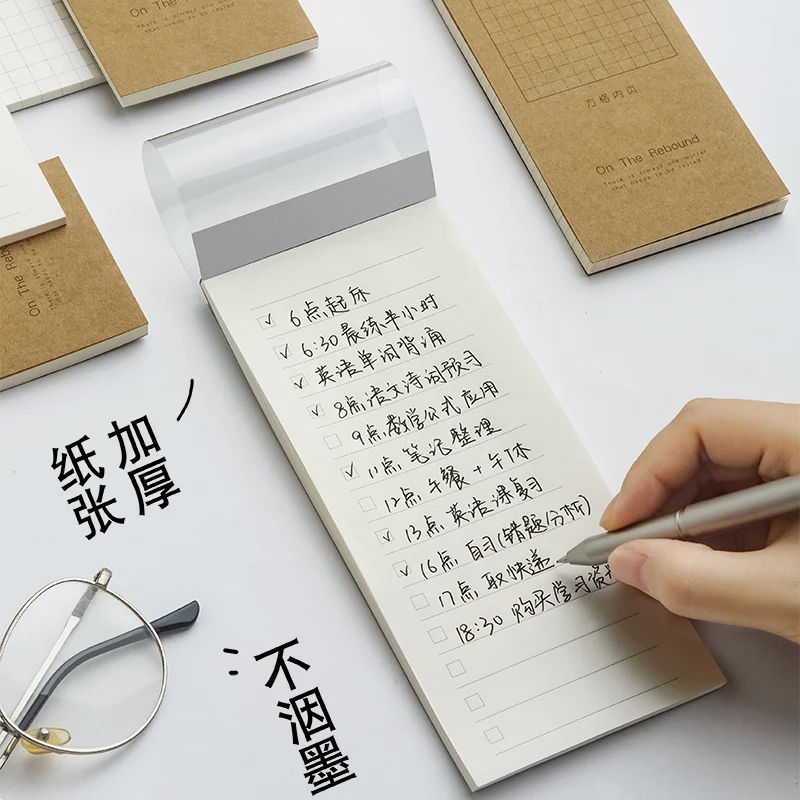 On The Rebound
There is always one winter
that needs to be rested
方格内页
On The Rebound
There is always one winter
that needs to be rested
On The Rebound
6点起床
6:30晨练半小时
英语单词背诵
8点语文诗词预习
9点数学公式应用
11点 笔记整理
12点 午餐+午休
13点 英语课复习
16点 自习(错题分析)
17点 取快递
18:30 购买学习资
纸张
加厚
不洇墨